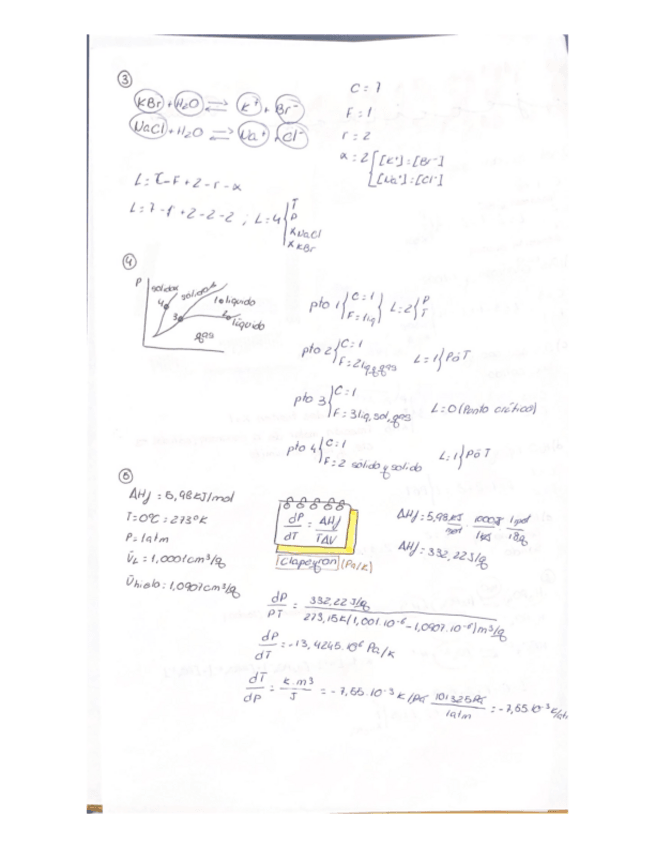 ③
KBr + H₂O ⇌ K⁺ + Br⁻
NaCl + H₂O ⇌ Na⁺ + Cl⁻
C = 7
F = 1
r = 2
α = 2 { [K⁺] = [Br⁻]
[Na⁺] = [Cl⁻]
L = C - F + 2 - r - α
L = 7 - 1 + 2 - 2 - 2 ; L = 4 { T
P
X NaCl
X KBr
④
P
solido
solido
1 liquido
4
3
2
líquido
gas
pto 1 { C = 1
F = 1 liq } L = 2 { P
T
pto 2 { C = 1
F = 2 liq, gas L = 1 } P ó T
pto 3 { C = 1
F = 3 liq, sol, gas L = 0 (Punto crítico)
pto 4 { C = 1
F = 2 sólido y solido L = 1 } P ó T
ΔHf = 5,98 KJ/mol
T = 0ºC = 273ºK
P = 1 atm
V̄L = 1,0001 cm³/g
V̄hielo = 1,0907 cm³/g
dP/dT = ΔHf/TΔV
Clapeyron (Pa/K)
ΔHf = 5,98 KJ/mol · 1000J/1KJ · 1mol/18g
ΔHf = 332,22 J/g
dP/PT = 332,22 J/g / 273,15K (1,001·10⁻⁶ - 1,0907·10⁻⁶) m³/g
dP/dT = -13,4245·10⁶ Pa/K
dT/dP = K·m³/J = -7,65·10⁻³ K/Pa 101325Pa/1atm = -7,65·10⁻³ K/